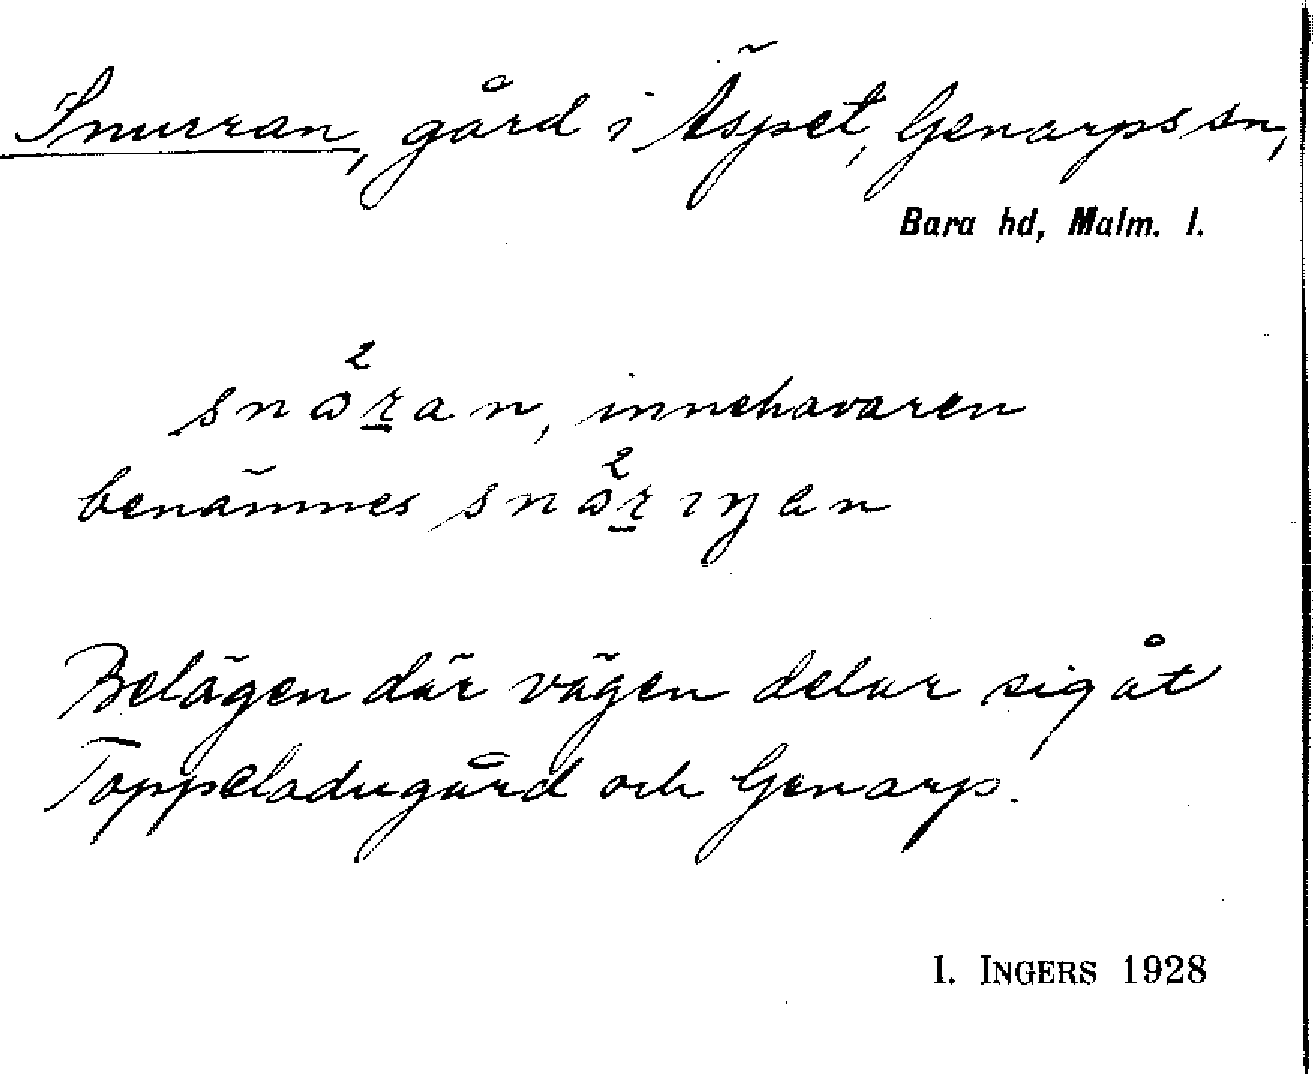 Snurran, gård i Äspet, Genarps sn,
Bara hd, Malm. l.
snɷ²r̲an, innehavaren
benämnes snɷ²r̲ıŋen
Belägen där vägen delar sig åt
Toppeladugård och Genarp.
I. INGERS 1928